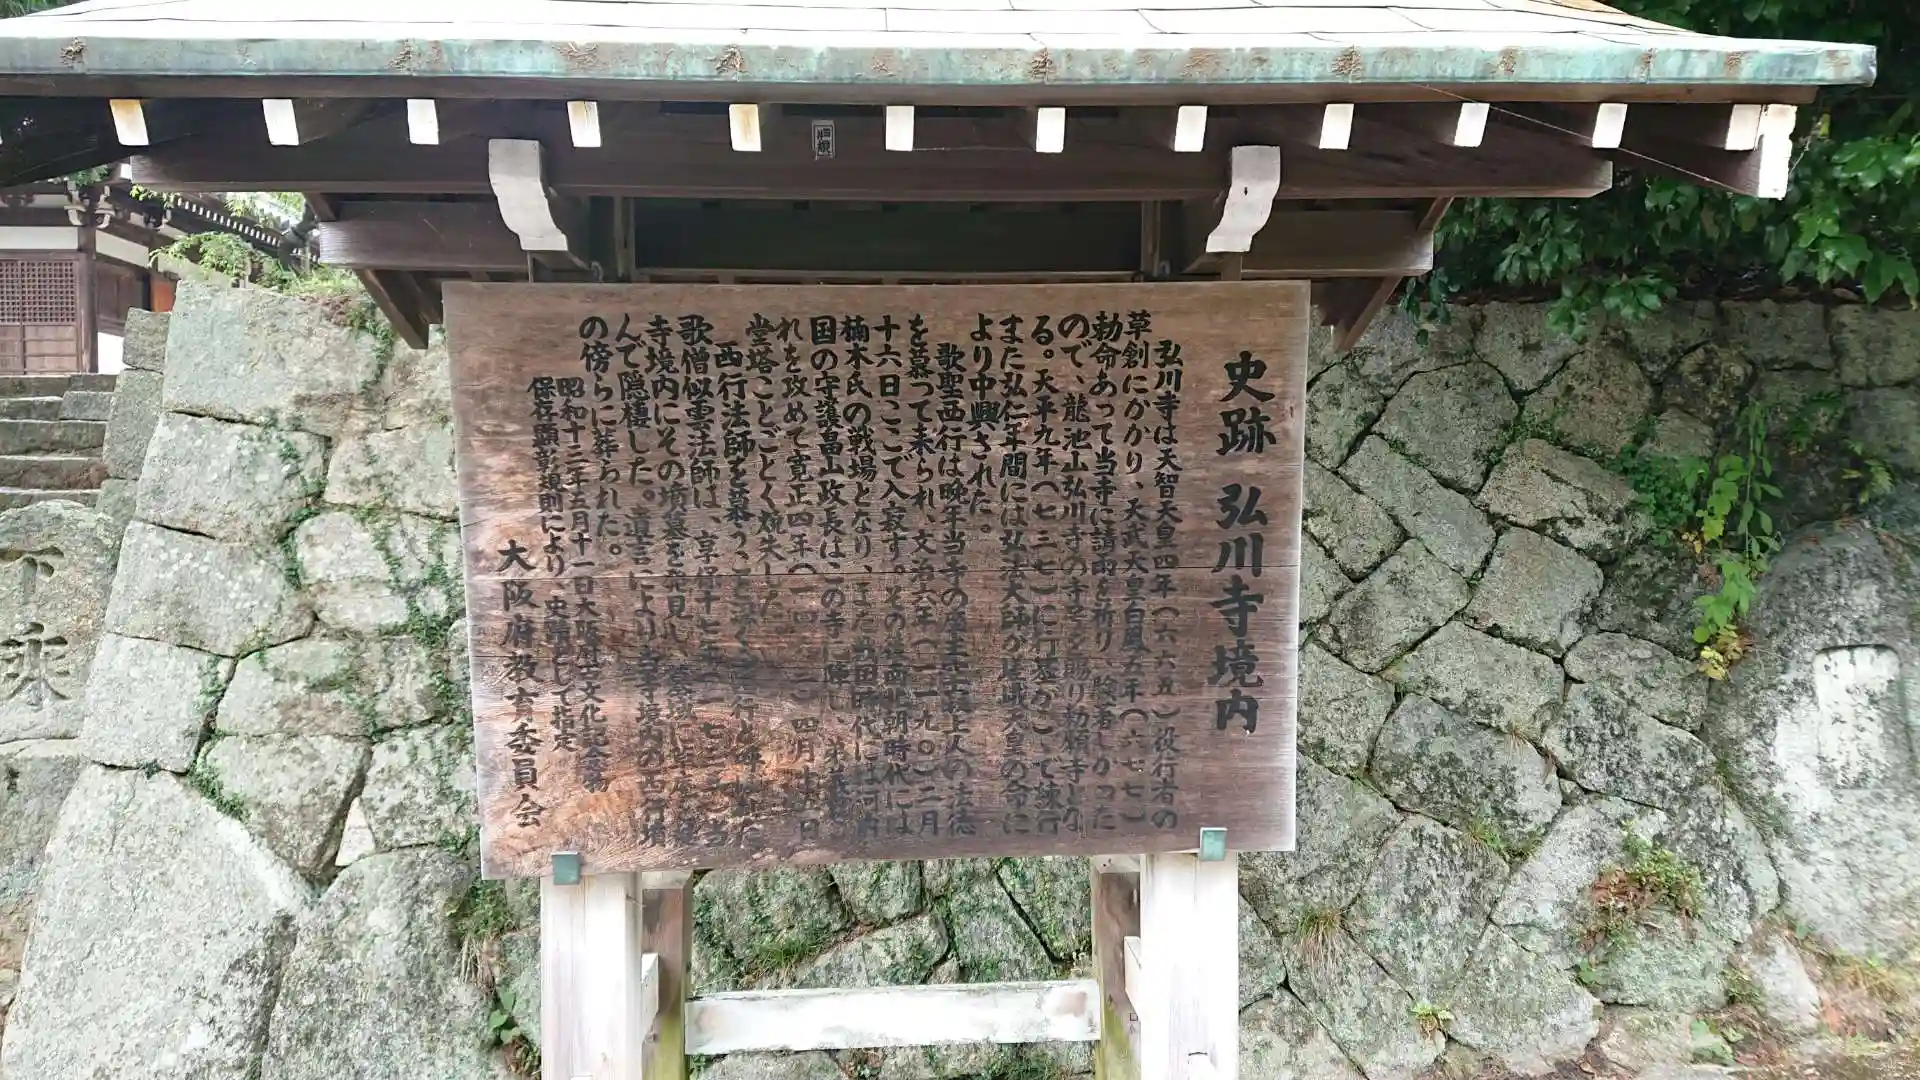 史跡 弘川寺境内
弘川寺は天智天皇四年（六六五）役行者の
草創にかかり、天武天皇白鳳五年（六七七）
勅命あって当寺に請雨を祈り、験者しかった
ので、龍池山弘川寺の寺号を賜り勅願寺とな
る。天平九年（七三七）に行基が、ここで練行
また弘仁年間には弘法大師が嵯峨天皇の命に
より中興された。
歌聖西行は晩年当寺の座主空寂上人の法徳
を慕って来られ、文治六年（一一九〇）二月
十六日ここで入寂す。その後南北朝時代には
楠木氏の戦場となり、また戦国時代には河内
国の守護畠山政長はこの寺に陣し、弟義就
れを攻めて寛正四年（一四六三）四月十五日
堂塔ことごとく焼失した
西行法師を慕うこと深く
歌僧似雲法師は、享保十七年（一七三二）当
寺境内にその墳墓を発見し、
んで隠棲した。遺言により当寺境内の西行墳
の傍らに葬られた。
昭和十三年五月十一日大阪府古文化記念物
保存顕彰規則により、史蹟として指定
大阪府教育委員会